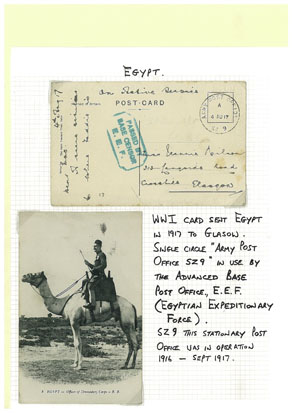 EGYPT.
On Active Service
POST-CARD
ARMY POST OFFICE
A
SZ 9
PASSED BY
BASE CENSOR
E. E. F.
Glasgow
WWI CARD SENT EGYPT
IN 1917 TO GLASOW.
SINGLE CIRCLE "ARMY POST
OFFICE SZ9" IN USE BY
THE ADVANCED BASE
POST OFFICE, E.E.F.
(EGYPTIAN EXPEDITIONARY
FORCE).
SZ9 THIS STATIONARY POST
OFFICE WAS IN OPERATION
1916 – SEPT 1917.
EGYPT – Officer of Dromadary Corps